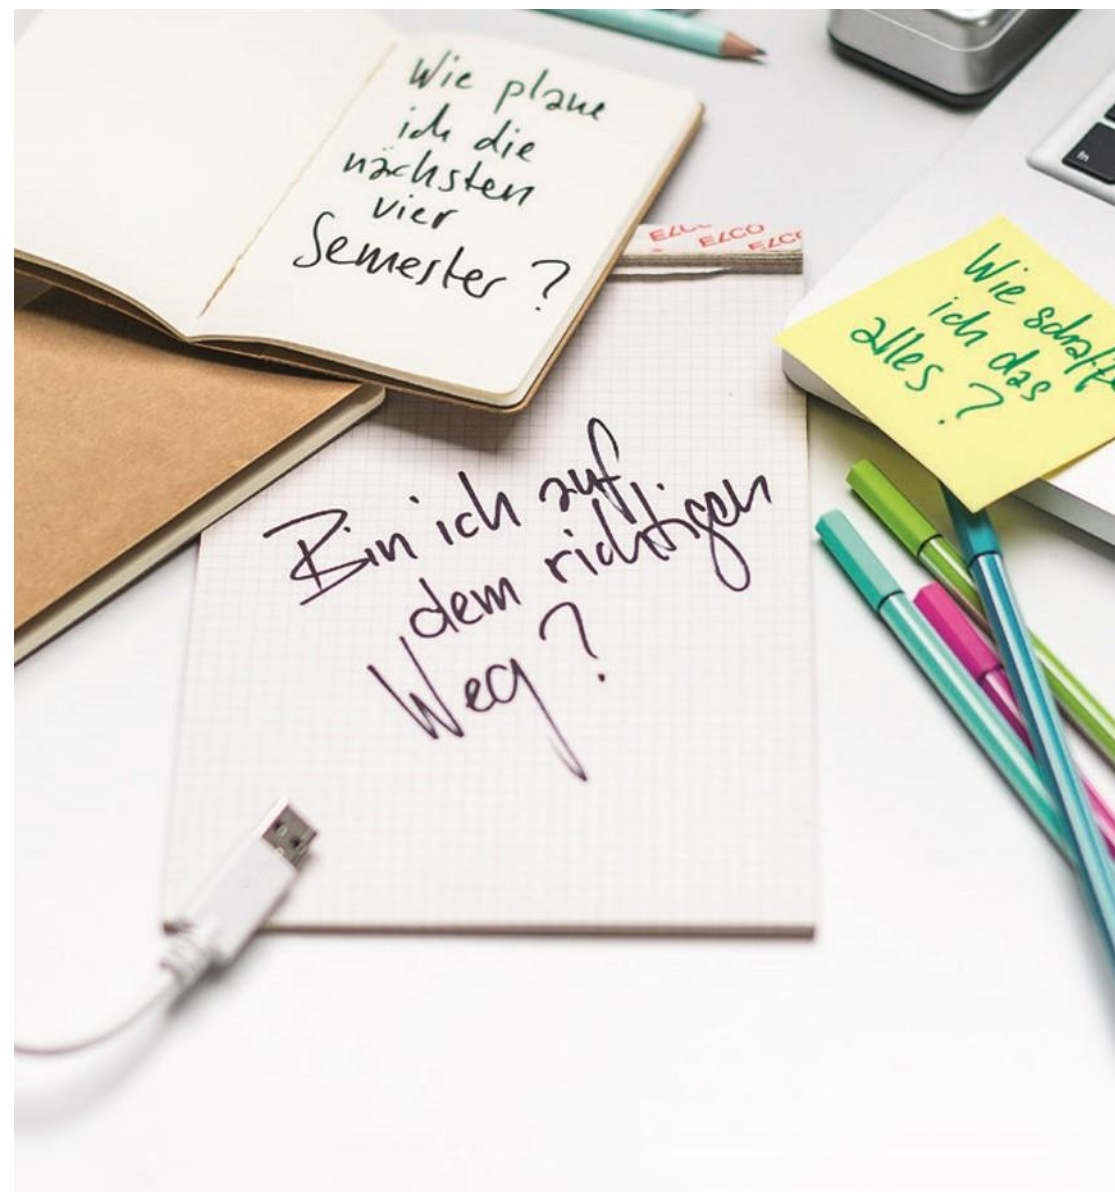 Wie plane
ich die
nächsten
vier
Semester ?
ELCO
ELCO
fn
Wie schaffe
ich das
alles ?
Bin ich auf
dem richtigen
Weg ?